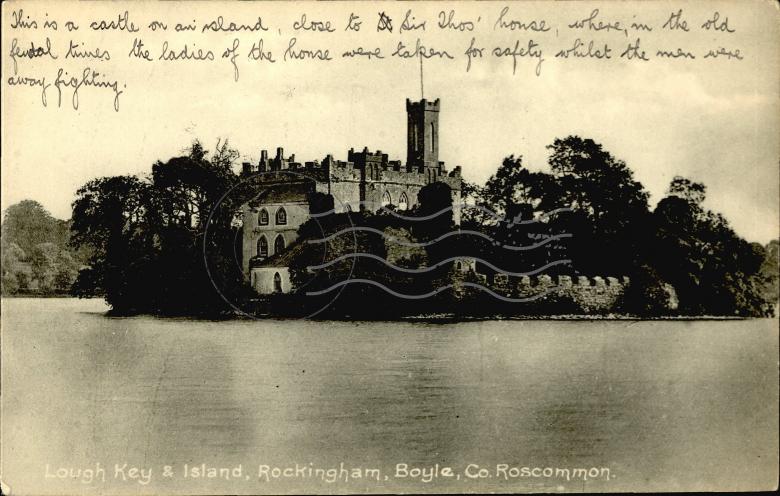 This is a castle on an island, close to Sir Thos' house, where, in the old
feudal times the ladies of the house were taken for safety whilst the men were
away fighting.
Lough Key & Island, Rockingham, Boyle, Co. Roscommon.